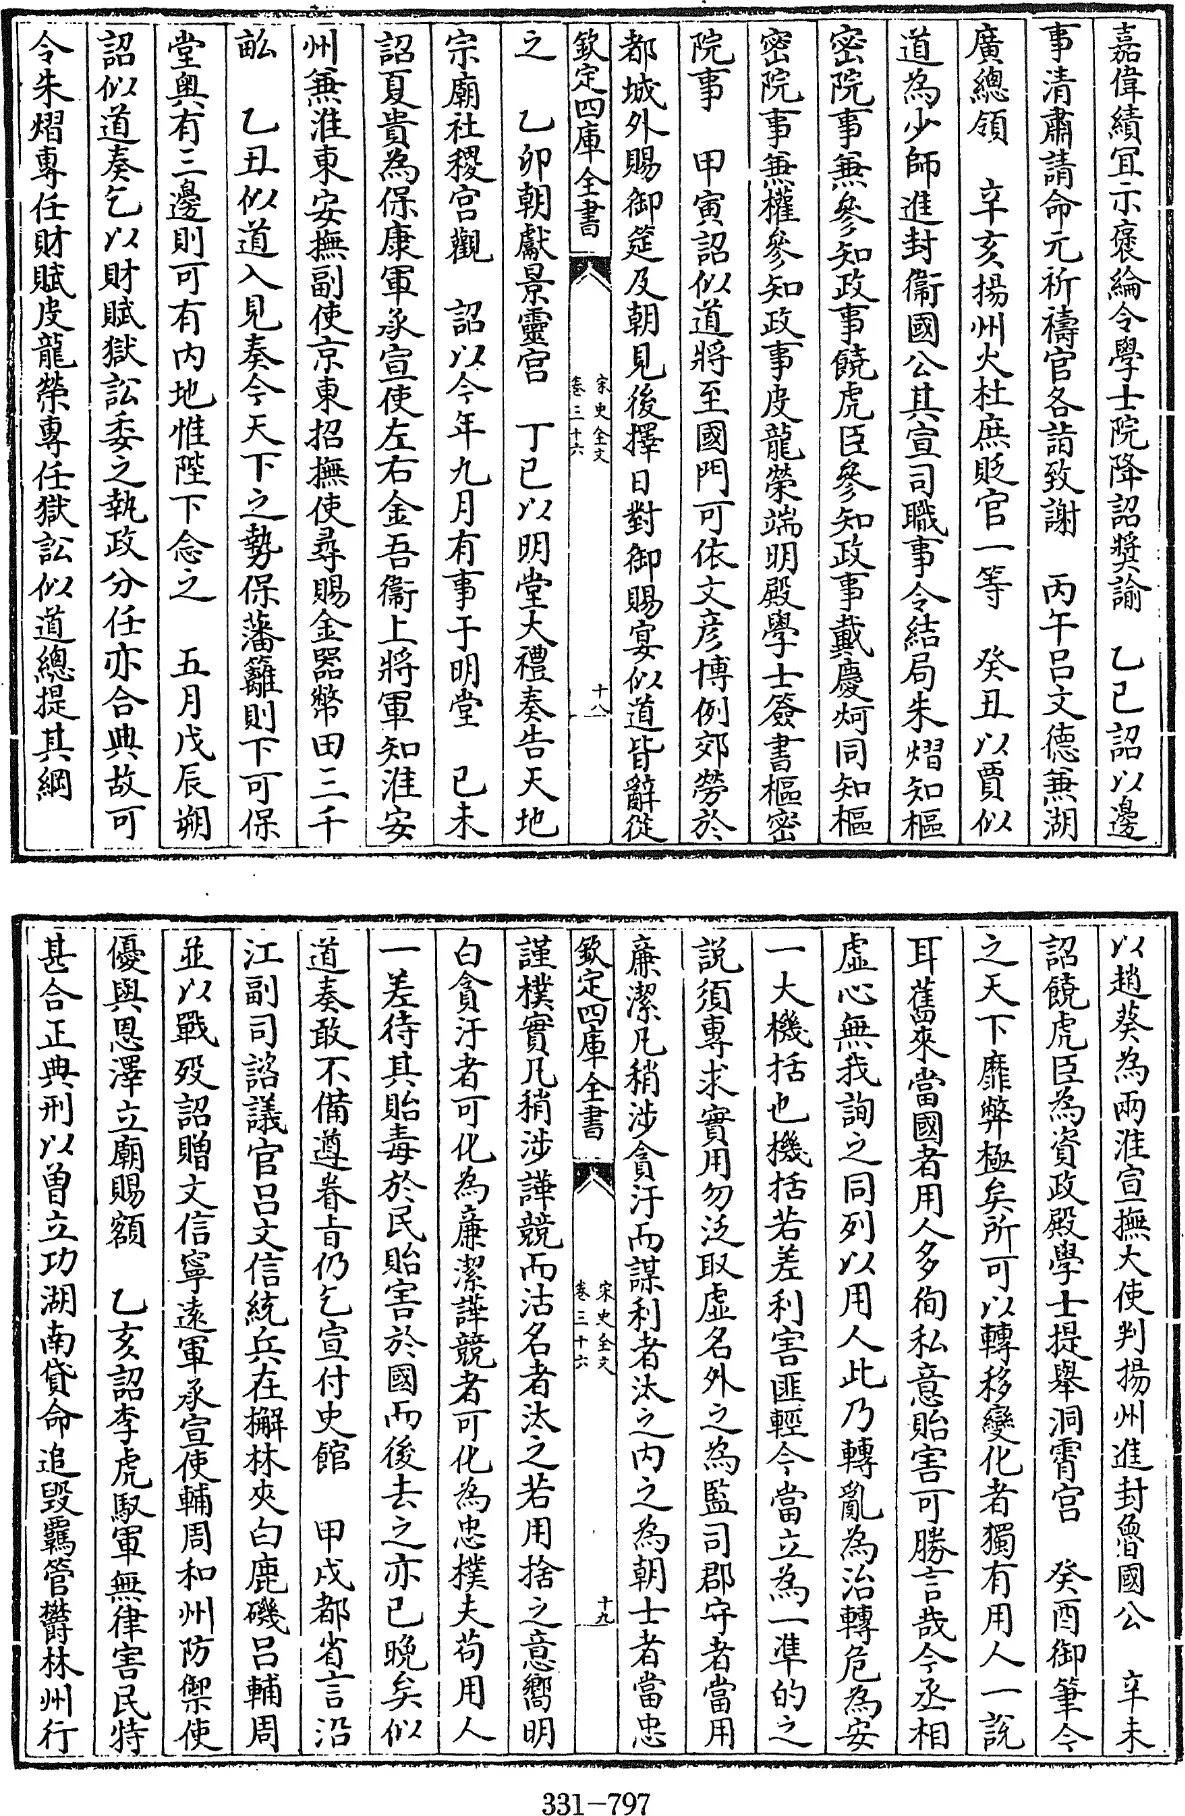 嘉偉績宜示褒綸令學士院降詔奬諭　乙巳詔以邊
事清肅請命元祈禱官各詣致謝　丙午呂文德兼湖
廣總領　辛亥揚州火杜庶貶官一等　癸丑以賈似
道為少師進封衞國公其宣司職事令結局朱熠知樞
密院事兼參知政事饒虎臣參知政事戴慶炣同知樞
密院事兼權參知政事皮龍榮端明殿學士簽書樞密
院事　甲寅詔似道將至國門可依文彦博例郊勞於
都城外賜御筵及朝見後擇日對御賜宴似道皆辭從
欽定四庫全書　宋史全文　卷三十六　十八
之　乙卯朝獻景靈宮　丁巳以明堂大禮奏告天地
宗廟社稷宮觀　詔以今年九月有事于明堂　己未
詔夏貴為保康軍承宣使左右金吾衞上將軍知淮安
州兼淮東安撫副使京東招撫使尋賜金器幣田三千
畝　乙丑似道入見奏今天下之勢保藩籬則下可保
堂奧有三邊則可有内地惟陛下念之　五月戊辰朔
詔似道奏乞以財賦獄訟委之執政分任亦合典故可
令朱熠專任財賦皮龍榮專任獄訟似道總提其綱
以趙葵為兩淮宣撫大使判揚州進封魯國公　辛未
詔饒虎臣為資政殿學士提舉洞霄宮　癸酉御筆今
之天下靡弊極矣所可以轉移變化者獨有用人一說
耳舊來當國者用人多徇私意貽害可勝言哉今丞相
虚心無我詢之同列以用人此乃轉亂為治轉危為安
一大機括也機括若差利害匪輕今當立為一準的之
說須專求實用勿泛取虚名外之為監司郡守者當用
廉潔凡稍涉貪汙而謀利者汰之内之為朝士者當忠
欽定四庫全書　宋史全文　卷三十六　十九
謹樸實凡稍涉譁競而沽名者汰之若用捨之意嚮明
白貪汙者可化為廉潔譁競者可化為忠樸夫苟用人
一差待其貽毒於民貽害於國而後去之亦已晚矣似
道奏敢不備遵眷旨仍乞宣付史館　甲戌都省言沿
江副司諮議官呂文信統兵在槲林夾白鹿磯呂輔周
並以戰歿詔贈文信寧遠軍承宣使輔周和州防禦使
優與恩澤立廟賜額　乙亥詔李虎馭軍無律害民特
甚合正典刑以曽立功湖南貸命追毁羈管鬱林州行
331—797